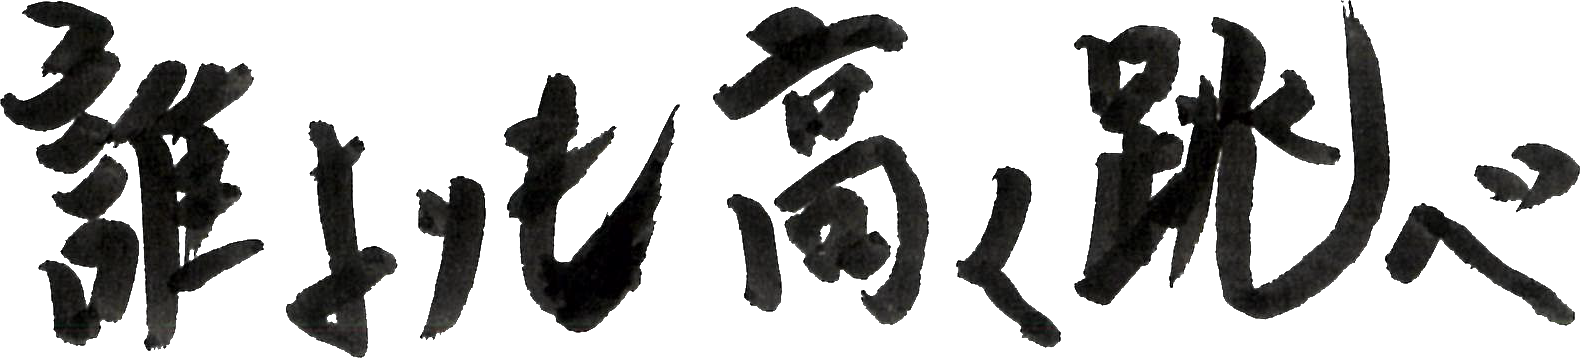 誰よりも高く跳べ